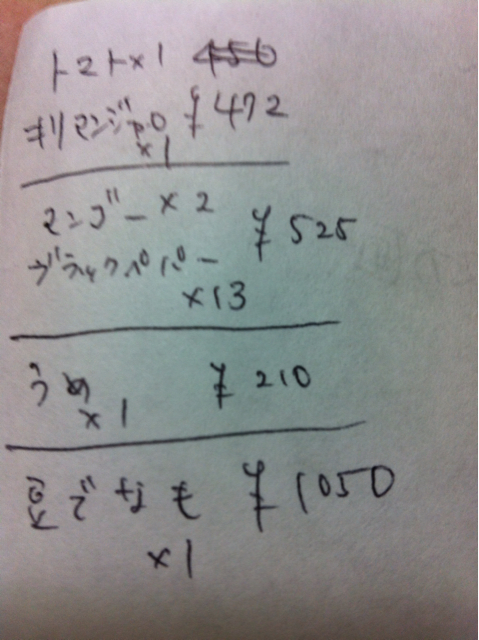 トマト×1
キリマンジャロ ¥472
×1
マンゴー ×2
¥525
ブラックペパー
×13
うめ ¥210
×1
¥1050
×1